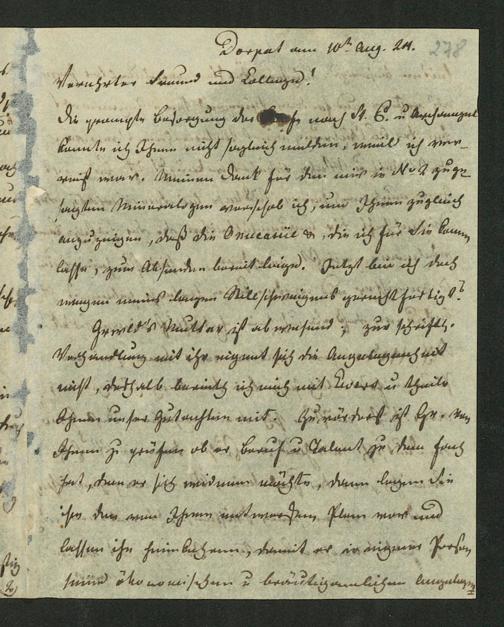 Dorpat am 10t Aug. 24. 278
Verehrter Freund und College!
Die prompte Besorgung des nach St. P. u Archangel
konnte ich Ihnen nicht sogleich melden, weil ich ver-
reist war. Meinen Dank für den mir in No 2 zuge-
sagten verschob ich, um Ihnen zugleich
anzuzeigen, daß die die ich für Sie
lasse, zum Absenden bereit liege. Jetzt bin ich doch
wegen meines langen Stillschweigens gerechtfertigt?
Mutter ist abwesend; zur schriftl.
Verhandlung mit ihr eignet sich die Angelegenheit
nicht, deshalb berieth ich mich mit Ewers u theile
Ihnen unser Gutachten mit. Zuvörderst ist Gr. von
Ihnen zu prüfen ob er Beruf u Talent zu dem Fach
hat, dem er sich widmen möchte, dann legen Sie
ihm den von Ihnen entworfenen Plan vor und
lassen ihn heimkehren, damit er in eigener Person
seine ökonomischen u bräutigamlichen Angelegen